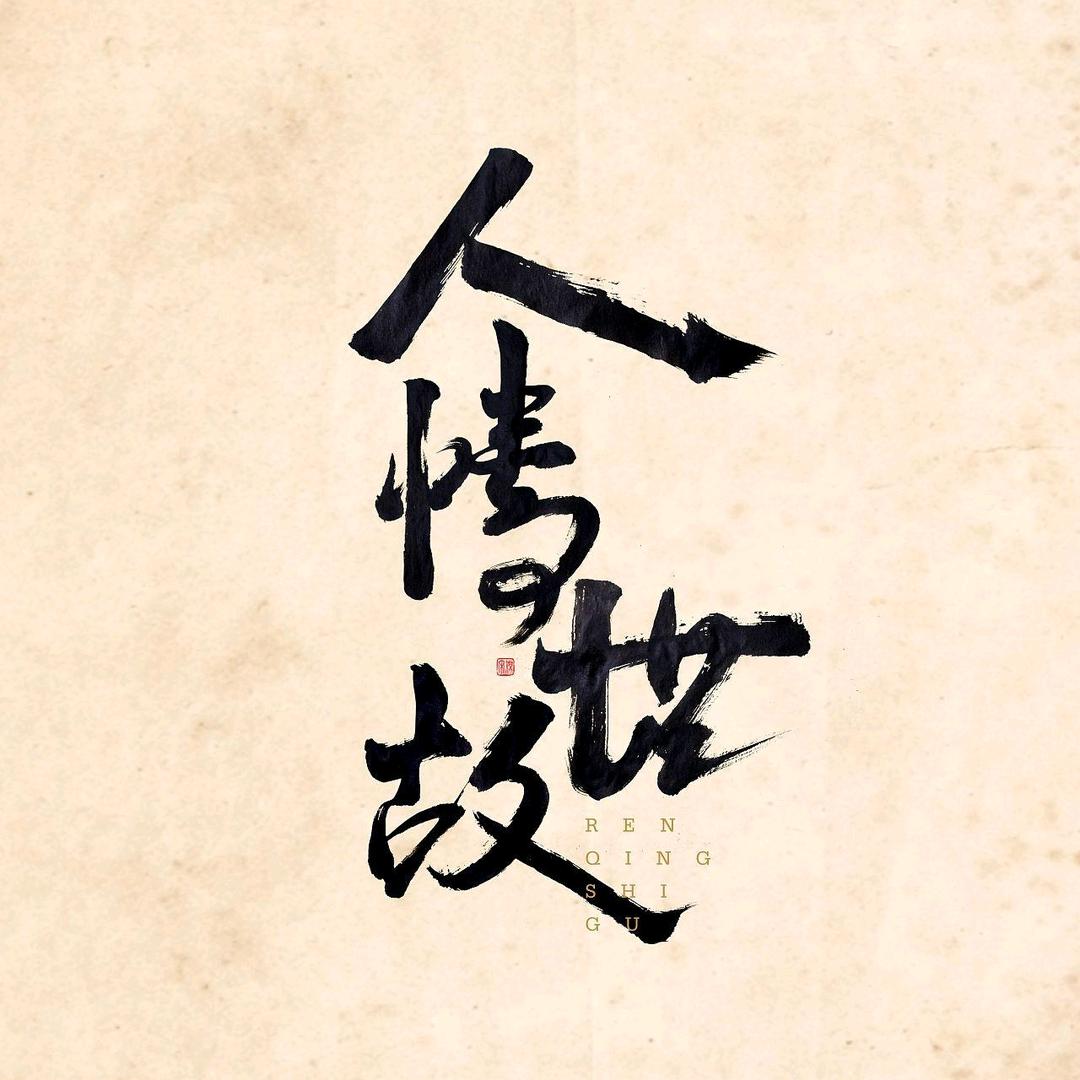 人
情
世
故
REN
QING
SHI
GU